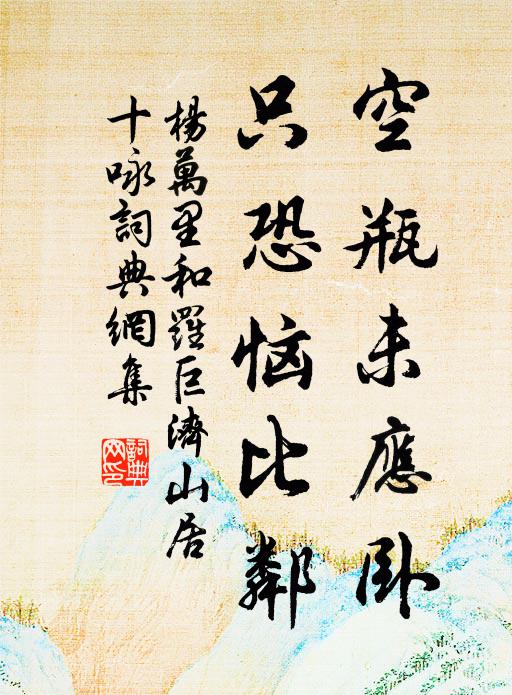 空瓶未應卧
只恐惱比鄰
楊萬里和羅巨濟山居
十咏詞典網集
詞典
网印